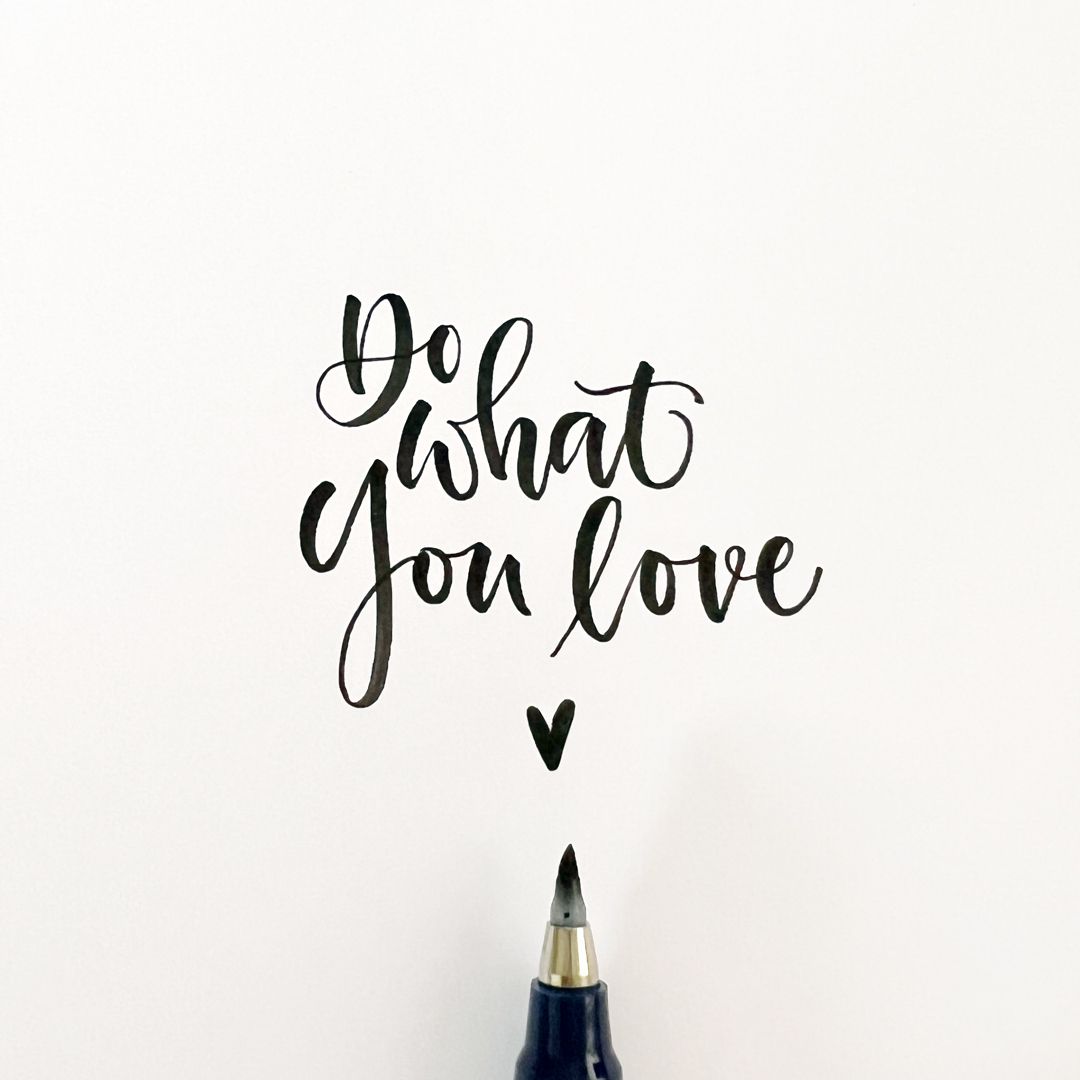 Do
what
you love